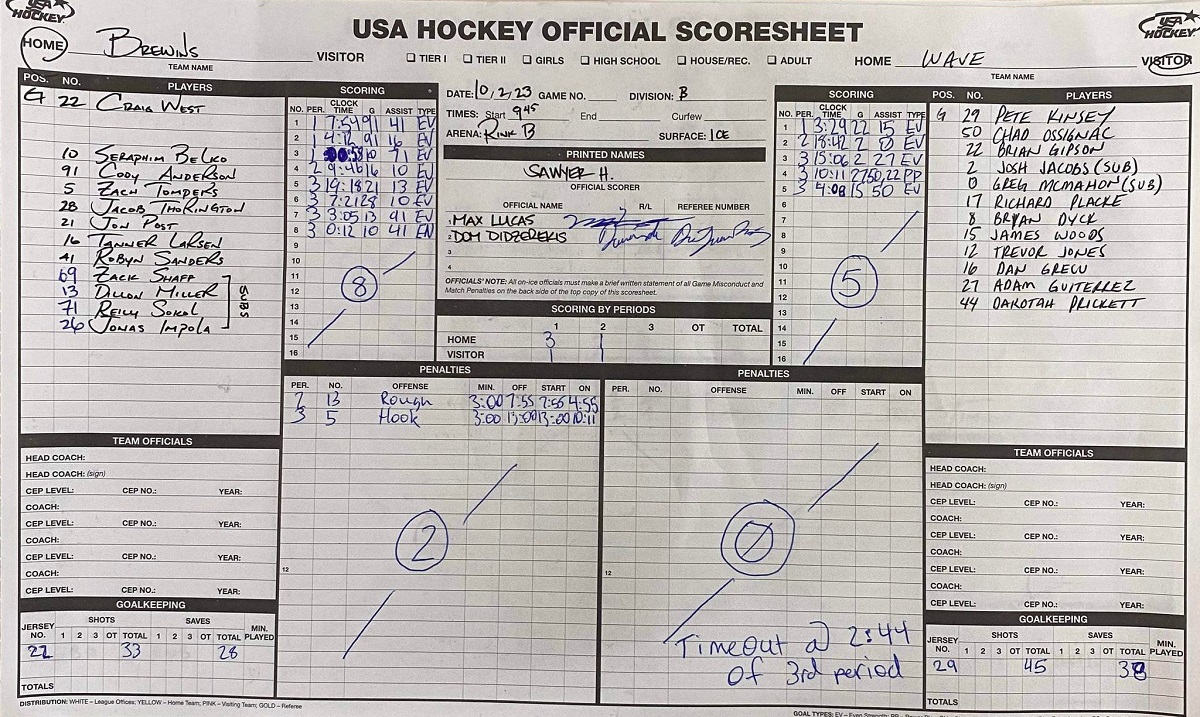 USA HOCKEY
USA HOCKEY OFFICIAL SCORESHEET
USA HOCKEY
HOME Brewins VISITOR
TEAM NAME
☐ TIER I ☐ TIER II ☐ GIRLS ☐ HIGH SCHOOL ☐ HOUSE/REC. ☐ ADULT
HOME WAVE VISITOR
TEAM NAME
POS. NO. PLAYERS
G 22 CRAIG WEST
10 SERAPHIM BELKO
91 CODY ANDERSON
5 ZACH TOMPERS
28 JACOB THORINGTON
21 JON POST
16 TANNER LARSEN
41 ROBYN SANDERS
69 ZACK SHAFF
13 DILLON MILLER
71 REILLY SOKOL
26 JONAS IMPOLA
SUBS
SCORING
NO. PER. CLOCK TIME G ASSIST TYPE
1 1 7:54 91 41 EV
2 1 4:12 91 16 EV
3 1 00:58 10 71 EV
4 2 9:46 16 10 EV
5 3 19:18 21 13 EV
6 3 7:21 28 10 EV
7 3 3:05 13 91 EV
8 3 0:12 10 41 EN
9
10
11
12
13
14
15
16
8
DATE: 10,2,23 GAME NO. DIVISION: B
TIMES: Start 9:45 End Curfew
ARENA: RINK B SURFACE: ICE
PRINTED NAMES
SAWYER H.
OFFICIAL SCORER
OFFICIAL NAME R/L REFEREE NUMBER
1 MAX LUCAS
2 DOM DIDZEREKIS
3
4
OFFICIALS' NOTE: All on-ice officials must make a brief written statement of all Game Misconduct and
Match Penalties on the back side of the top copy of this scoresheet.
SCORING BY PERIODS
1 2 3 OT TOTAL
HOME 3 1
VISITOR 1 1
SCORING
NO. PER. CLOCK TIME G ASSIST TYPE
1 1 3:29 22 15 EV
2 2 18:42 2 0 EV
3 3 15:06 2 27 EV
4 3 10:11 27 50,22 PP
5 3 4:08 15 50 EV
6
7
8
9
10
11
12
13
14
15
16
5
POS. NO. PLAYERS
G 29 PETE KINSEY
50 CHAD OSSIGNAC
22 BRIAN GIPSON
2 JOSH JACOBS (SUB)
0 GREG MCMAHON (SUB)
17 RICHARD PLACKE
8 BRYAN DYCK
15 JAMES WOODS
12 TREVOR JONES
16 DAN GRECU
27 ADAM GUITERREZ
44 DAKOTAH PRICKETT
PENALTIES
PER. NO. OFFENSE MIN. OFF START ON
2 13 Rough 3:00 7:55 7:55 4:55
3 5 Hook 3:00 13:00 13:00 10:11
12
2
PENALTIES
PER. NO. OFFENSE MIN. OFF START ON
12
0
Timeout @ 2:44
of 3rd period
TEAM OFFICIALS
HEAD COACH:
HEAD COACH: (sign)
CEP LEVEL: CEP NO.: YEAR:
COACH:
CEP LEVEL: CEP NO.: YEAR:
COACH:
CEP LEVEL: CEP NO.: YEAR:
COACH:
CEP LEVEL: CEP NO.: YEAR:
GOALKEEPING
JERSEY NO. SHOTS 1 2 3 OT TOTAL SAVES 1 2 3 OT TOTAL MIN. PLAYED
22 33 28
TOTALS
TEAM OFFICIALS
HEAD COACH:
HEAD COACH: (sign)
CEP LEVEL: CEP NO.: YEAR:
COACH:
CEP LEVEL: CEP NO.: YEAR:
COACH:
CEP LEVEL: CEP NO.: YEAR:
COACH:
CEP LEVEL: CEP NO.: YEAR:
GOALKEEPING
JERSEY NO. SHOTS 1 2 3 OT TOTAL SAVES 1 2 3 OT TOTAL MIN. PLAYED
29 45 38
TOTALS
DISTRIBUTION: WHITE – League Offices; YELLOW – Home Team; PINK – Visiting Team; GOLD – Referee
GOAL TYPES: EV – Even Strength;